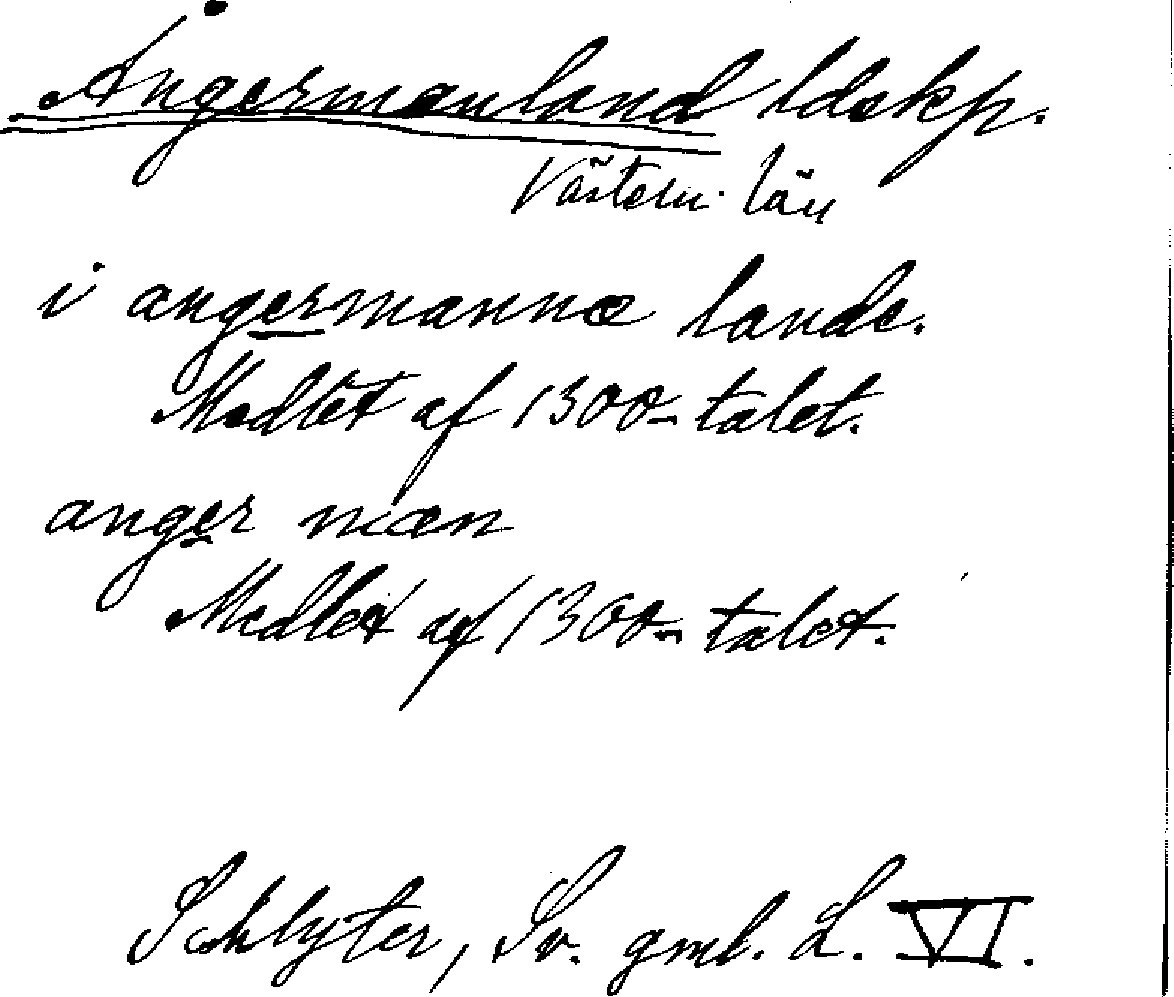 Ångermanland ldskp.
Västern. län
i angermannæ lande.
Medlet af 1300-talet.
anger mæn
Medlet af 1300-talet.
Schlyter, Sv. gml. L. VI.